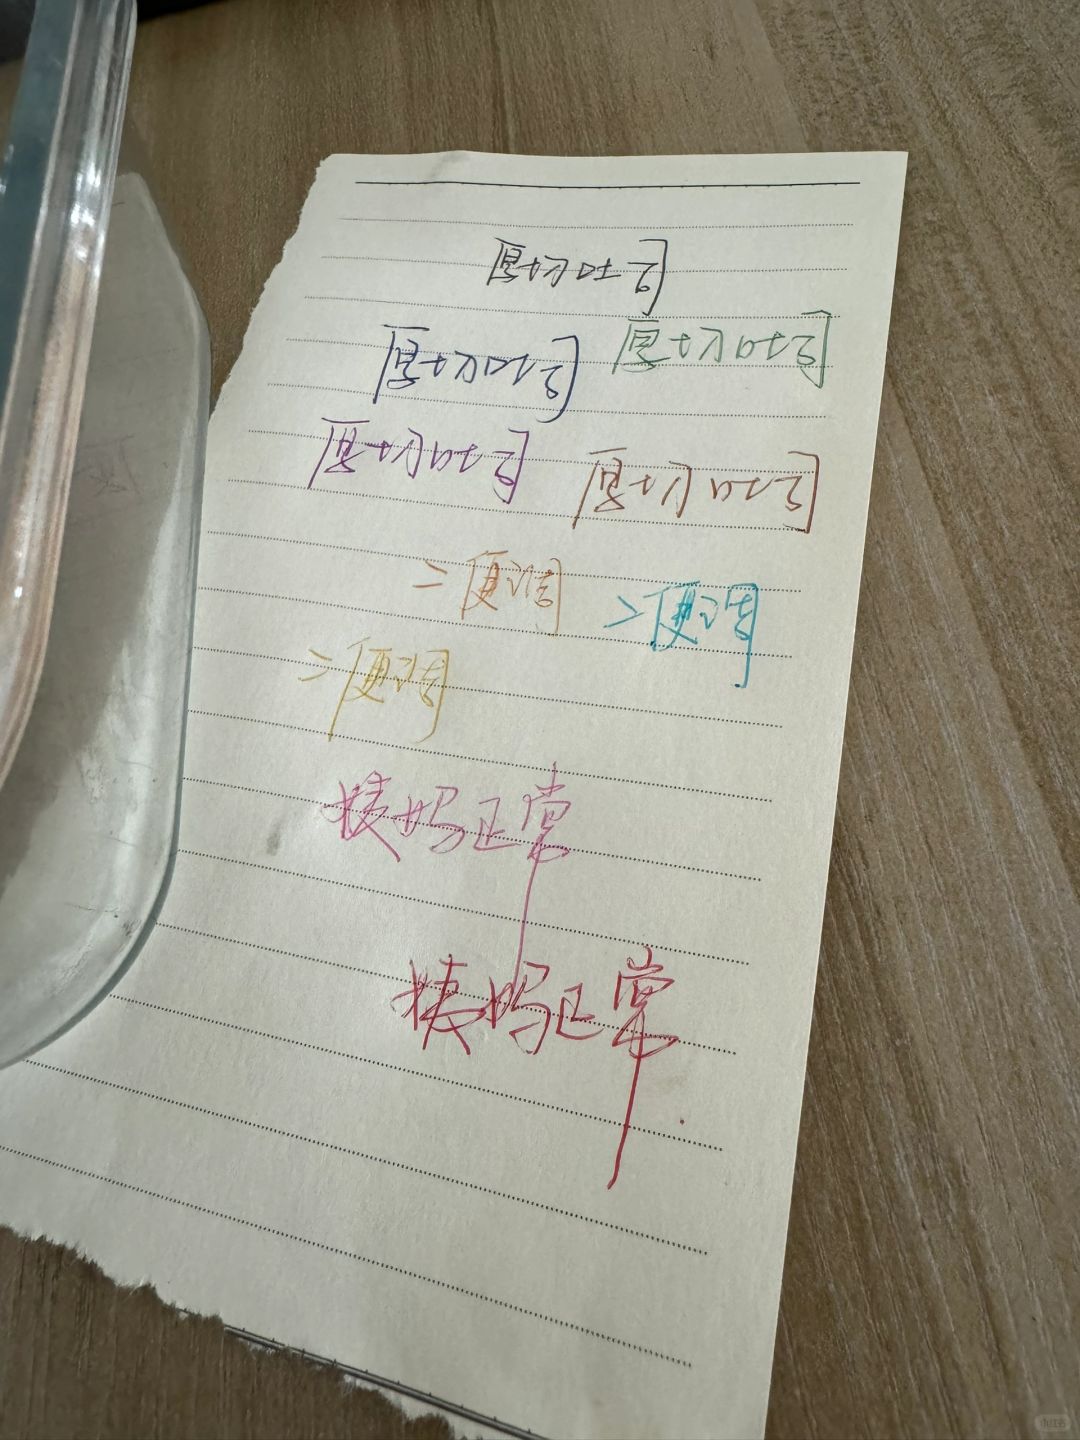 厚切吐司
厚切吐司
厚切吐司
厚切吐司
厚切吐司
二便调
二便调
二便调
姨妈正常
姨妈正常
小红书